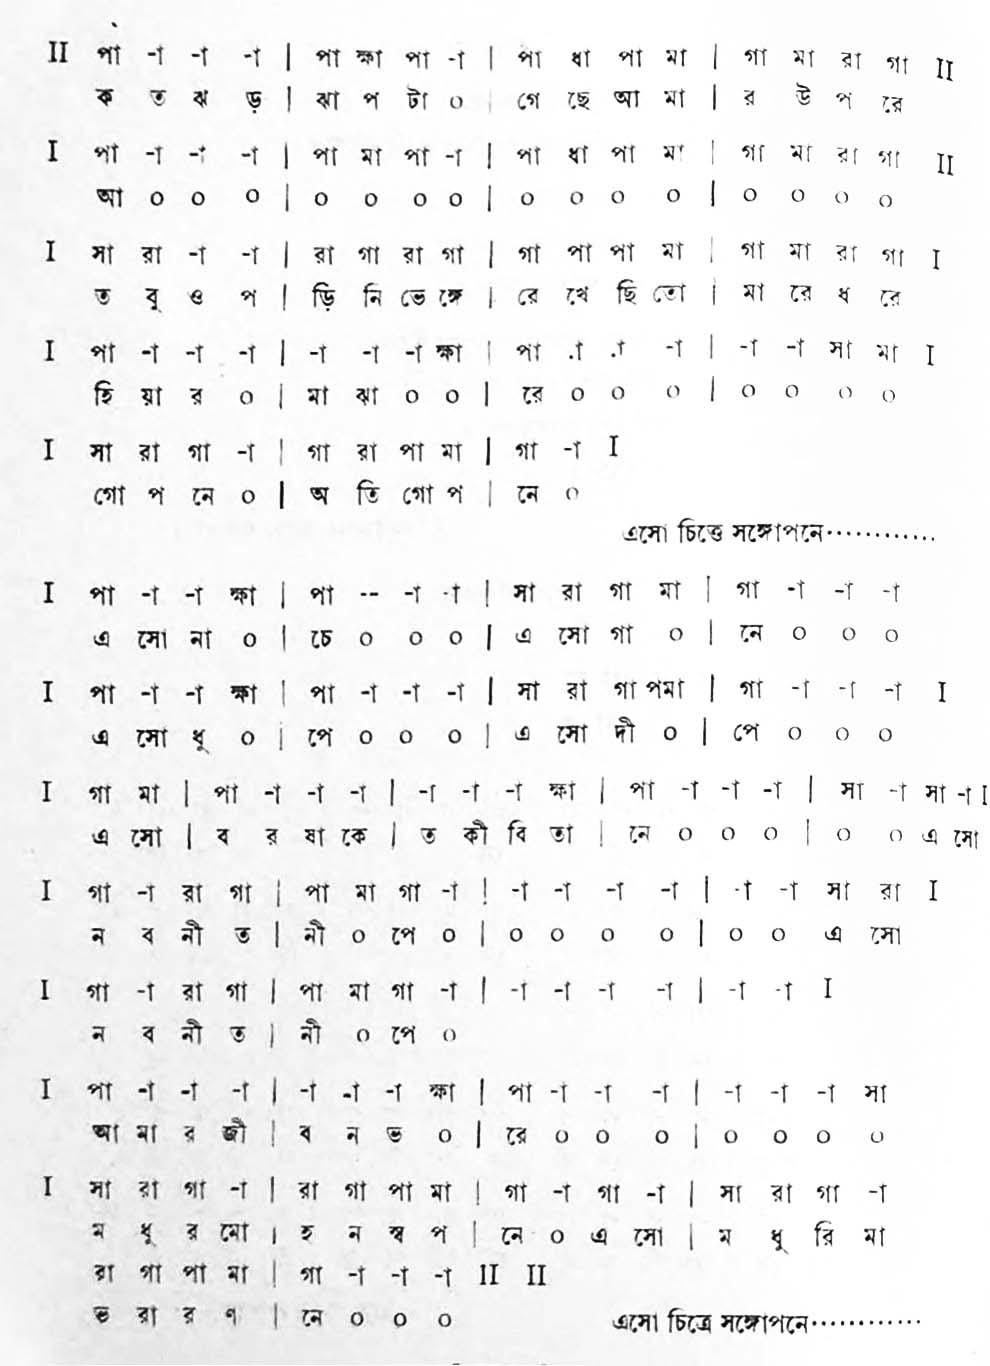 II পা -া -া -া | পা ক্ষা পা -া | পা ধা পা মা | গা মা রা গা II
ক ত ঝ ড় | ঝা প টা ০ | গে ছে আ মা | র উ প রে
I পা -া -া -া | পা মা পা -া | পা ধা পা মা | গা মা রা গা II
আ ০ ০ ০ | ০ ০ ০ ০ | ০ ০ ০ ০ | ০ ০ ০ ০
I সা রা -া -া | রা গা রা গা | গা পা পা মা | গা মা রা গা I
ত বু ও প | ড়ি নি ভে ঙ্গে | রে খে ছি তো | মা রে ধ রে
I পা -া -া -া | -া -া -া ক্ষা | পা -া -া -া | -া -া সা মা I
হি য়া র ০ | মা ঝা ০ ০ | রে ০ ০ ০ | ০ ০ ০ ০
I সা রা গা -া | গা রা পা মা | গা -া I
গো প নে ০ | অ তি গো প | নে ০
এসো চিত্তে সঙ্গোপনে············
I পা -া -া ক্ষা | পা -- -া -া | সা রা গা মা | গা -া -া -া
এ সো না ০ | চে ০ ০ ০ | এ সো গা ০ | নে ০ ০ ০
I পা -া -া ক্ষা | পা -া -া -া | সা রা গা পমা | গা -া -া -া I
এ সো ধু ০ | পে ০ ০ ০ | এ সো দী ০ | পে ০ ০ ০
I গা মা | পা -া -া -া | -া -া -া ক্ষা | পা -া -া -া | সা -া সা -া I
এ সো | ব র ষা কে | ত কী বি তা | নে ০ ০ ০ | ০ ০ এ সো
I গা -া রা গা | পা মা গা -া ! -া -া -া -া | -া -া সা রা I
ন ব নী ত | নী ০ পে ০ | ০ ০ ০ ০ | ০ ০ এ সো
I গা -া রা গা | পা মা গা -া | -া -া -া -া | -া -া I
ন ব নী ত | নী ০ পে ০
I পা -া -া -া | -া -া -া ক্ষা | পা -া -া -া | -া -া -া সা
আ মা র জী | ব ন ভ ০ | রে ০ ০ ০ | ০ ০ ০ ০
I সা রা গা -া | রা গা পা মা | গা -া গা -া | সা রা গা -া
ম ধু র মো | হ ন স্ব প | নে ০ এ সো | ম ধু রি মা
রা গা পা মা | গা -া -া -া II II
ভ রা র ণ | নে ০ ০ ০
এসো চিত্রে সঙ্গোপনে············